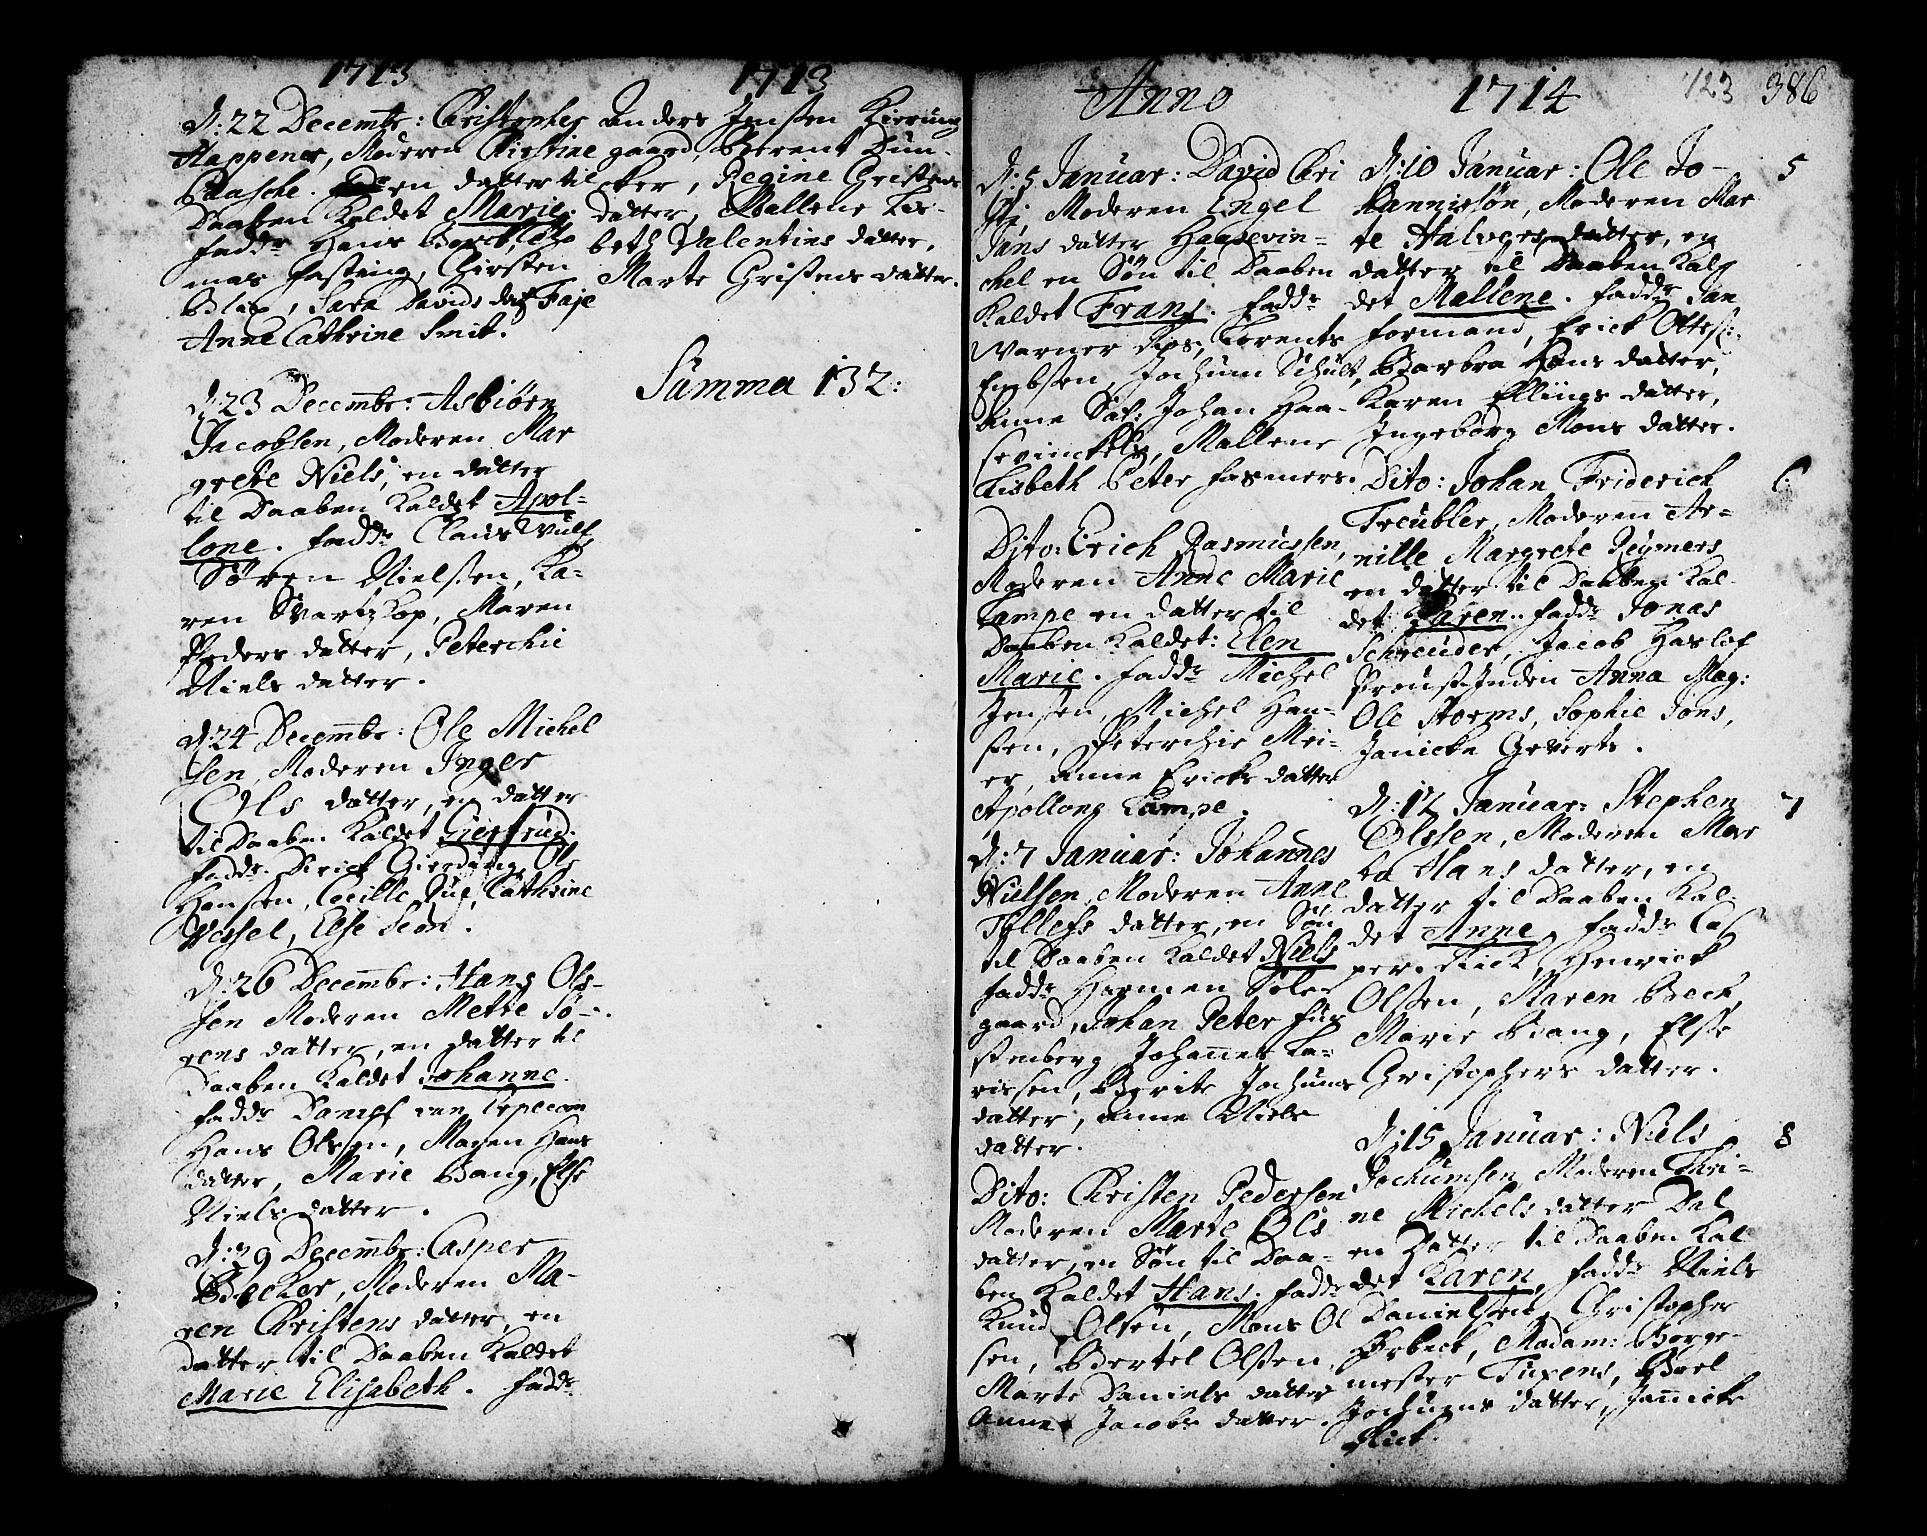 1713
d: 22 Decembr: Christopher
Happener, Moderen Kirstine
Paasche. en datter til
Daaben Kaldet Marie.
fadd: Hans
mas fasting, Chirsten
Blix, Sara Davids
Anne Cathrine Smit.
d: 23 Decembr: Asbiørn
Jacobsen, Moderen Mar
grete Niels, en datter
til Daaben Kaldet Apol-
lone. fadd: Claus Wulf,
Søren Nielsen, Ka-
ren Svartzkop, Maren
Peders datter, Peterchie
Niels datter.
d: 24 Decembr: Ole Michel
sen, Moderen Inger
Ols datter, en datter
til Daaben Kaldet Giertrud.
fadd: Dirick Ole
Hansen, Cecille Cathrine
Wessel, Else Leon.
d: 26 Decembr: Hans Ols-
sen Moderen Mette Sø-
rens datter, en datter til
Daaben Kaldet Johanne.
fadd: Daniel
Hans Olssen, Maren Hans
datter, Marie Bang, Else
Niels datter.
d: 29 Decembr: Casper
Becker, Moderen Ma-
ren Christens datter, en
datter til Daaben Kaldet
Marie Elisabeth. fadd:
1713
Anders Jensen Kierum
gaard, Berent Dun-
cker, Regine Christens
datter, Mallene Lis-
beth Valentins datter,
Marte Christens datter.
Summa 132:
Anno 1714
123 386
d: 5 Januar: David Chri
sti, Moderen Engel
Jans datter Haasevin-
chel en Søn til Daaben
Kaldet Frans. fadd:
Warner Ros, Lorents
Embsen, Jochum Schult,
Anne Sal: Johan Haa-
sevinckels, Mallene
Lisbeth Peter fasmers.
Dito: Erich Rasmussen,
Moderen Anne Marie
Lampe en datter til
Daaben Kaldet: Elen
Marie. fadd: Michel
Jensen, Michel Han-
sen, Peterchie Mei-
er, Anne Ericks datter
Apollone Lampe.
d: 7 Januar: Johannes
Nielsen, Moderen Anne
Tollefs datter, en Søn
til Daaben Kaldet Niels
fadd: Harmen Sole-
gaard, Johan Peter Für
stenberg Johannes La-
rissen, Berite Jochums
datter, Anne Niels
datter.
Dito: Christen Pedersen
Moderen Marte Ols
datter, en Søn til Daa-
ben Kaldet Hans. fadd:
Knud Olsen, Mons Ol
sen, Bertel Olsen,
Marte Daniels datter
Anne Jacobs datter.
d: 10 Januar: Ole Jo- 5
hannissøn, Moderen Mar
te Halvors datter, en
datter til Daaben Kal
det Mallene. fadd: Jan
formand, Erick Ottes:
Barbra Hans datter,
Karen Ellings datter,
Ingeborg Mons datter.
Dito: Johan Friderich 6
Treubler, Moderen Ar-
nille Margrete Reymers
en datter til Daaben Kal-
det Karen. fadd: Jonas
Schreuder, Jacob Haslof
Anna Mag:
Ole Storms, Sophie Jons,
Janicke Geverts.
d: 12 Januar: Stephen 7
Olssen, Moderen Mar
ta Hans datter, en
datter til Daaben Kal-
det Anne. fadd: Cas
per Rick, Henrick
Olsen, Maren Beck,
Marie Bang, Else
Christophers datter.
d: 15 Januar: Niels 8
Jochumsen, Moderen Thri-
ne Michels datter Dal
en Datter til Daaben Kal
det Karen, fadd: Niels
Danielsen, Christopher
Ørbeck, Madam: Borge-
mester Tuxens, Boel
Jochums datter, Jannicke
Rick.